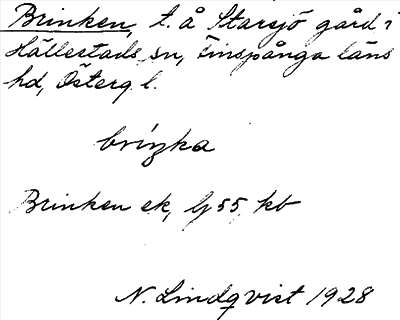 Brinken, t. å Starsjö gård i
Hällestads sn, Finspånga läns
hd, Österg. l.
brıŋka
Brinken ek, Gj 55, kb
N. Lindqvist 1928